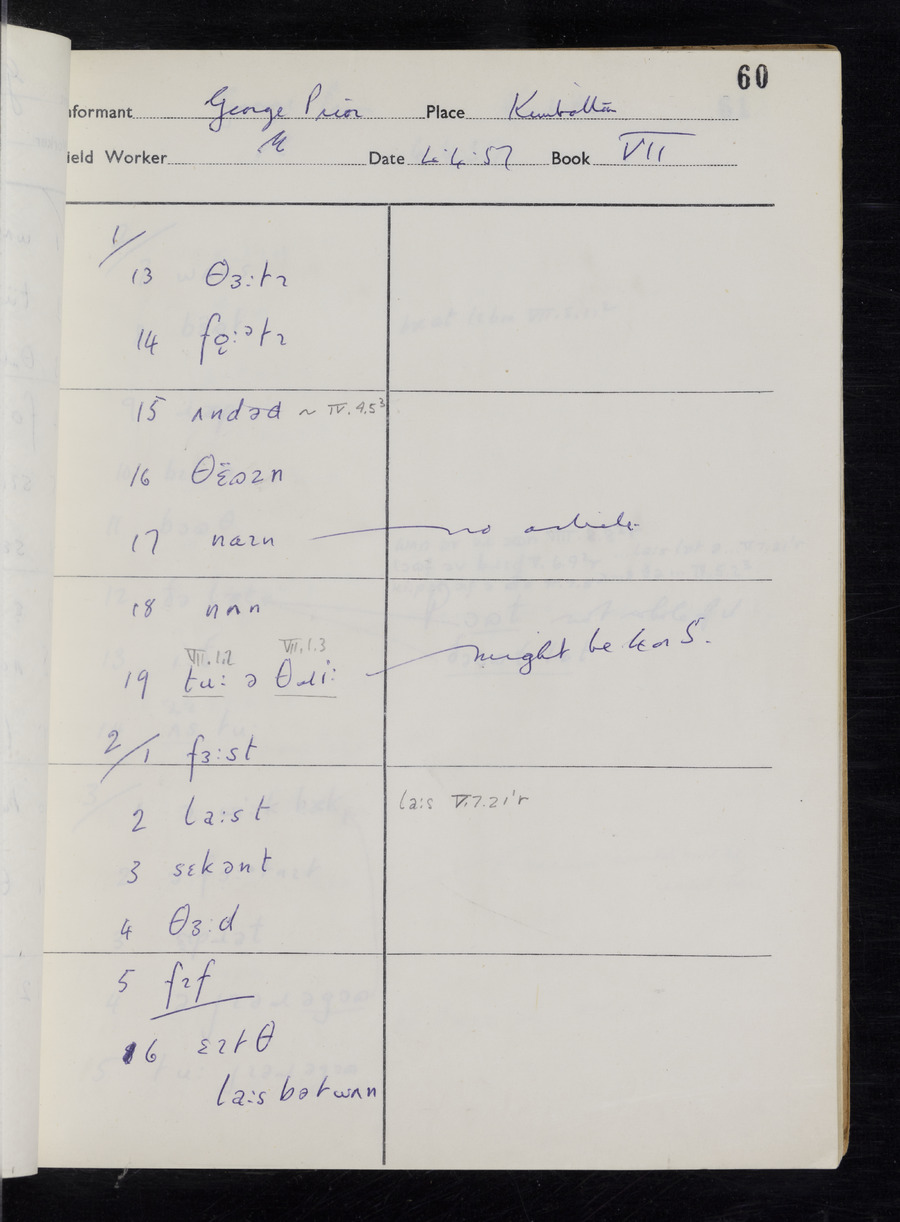 60
nformant George Prior Place Kimbolton
ield Worker Date 4.4.57 Book VII
1/
13 θɜːtɪ
14 fo̜ːətɪ
15 ʌndəd ~ IV.9.5³
16 θɛ̈ʊzn
17 naɪn no article
18 nʌn
VII.1.2 VII.1.3
19 tuː ə θɹiː might be 4 or 5.
2/1 fɜːst
2 laːst laːs V.7.21ʹr
3 sɛkənt
4 θɜːd
5 fɪf
6 ɛɪtθ
laːs bət wʌn